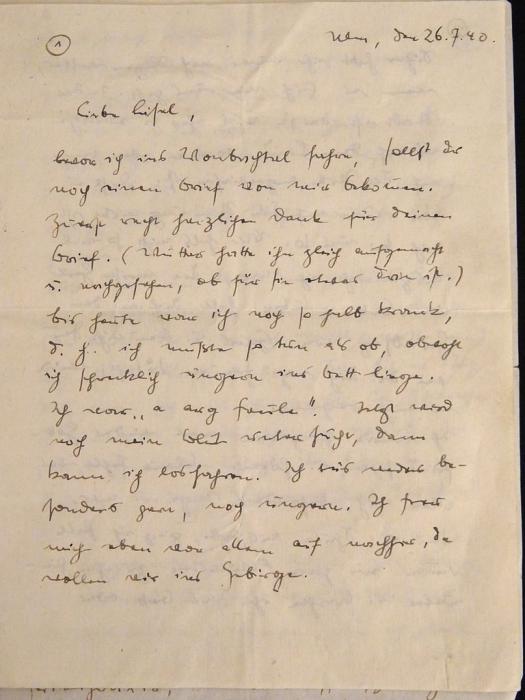 1
Ulm, den 26.7.40.
Liebe Lisel,
bevor ich ins Montischtal fahre, sollst du
noch einen Brief von mir bekommen.
Zuerst recht herzlichen Dank für deinen
Brief. (Mutter hatte ihn gleich aufgemacht
u. nachgesehen, ob für sie etwas drin ist.)
bis heute war ich noch so halb krank,
d. h. ich mußte so tun als ob, obwohl
ich schrecklich ungern im Bett liege.
Ich war „a arg faule“. Jetzt wird
noch mein Blut untersucht, dann
kann ich losfahren. Ich tus weder be-
sonders gern, noch ungern. Ich freu
mich eben vor allem auf nachher, da
wollen wir ins Gebirge.